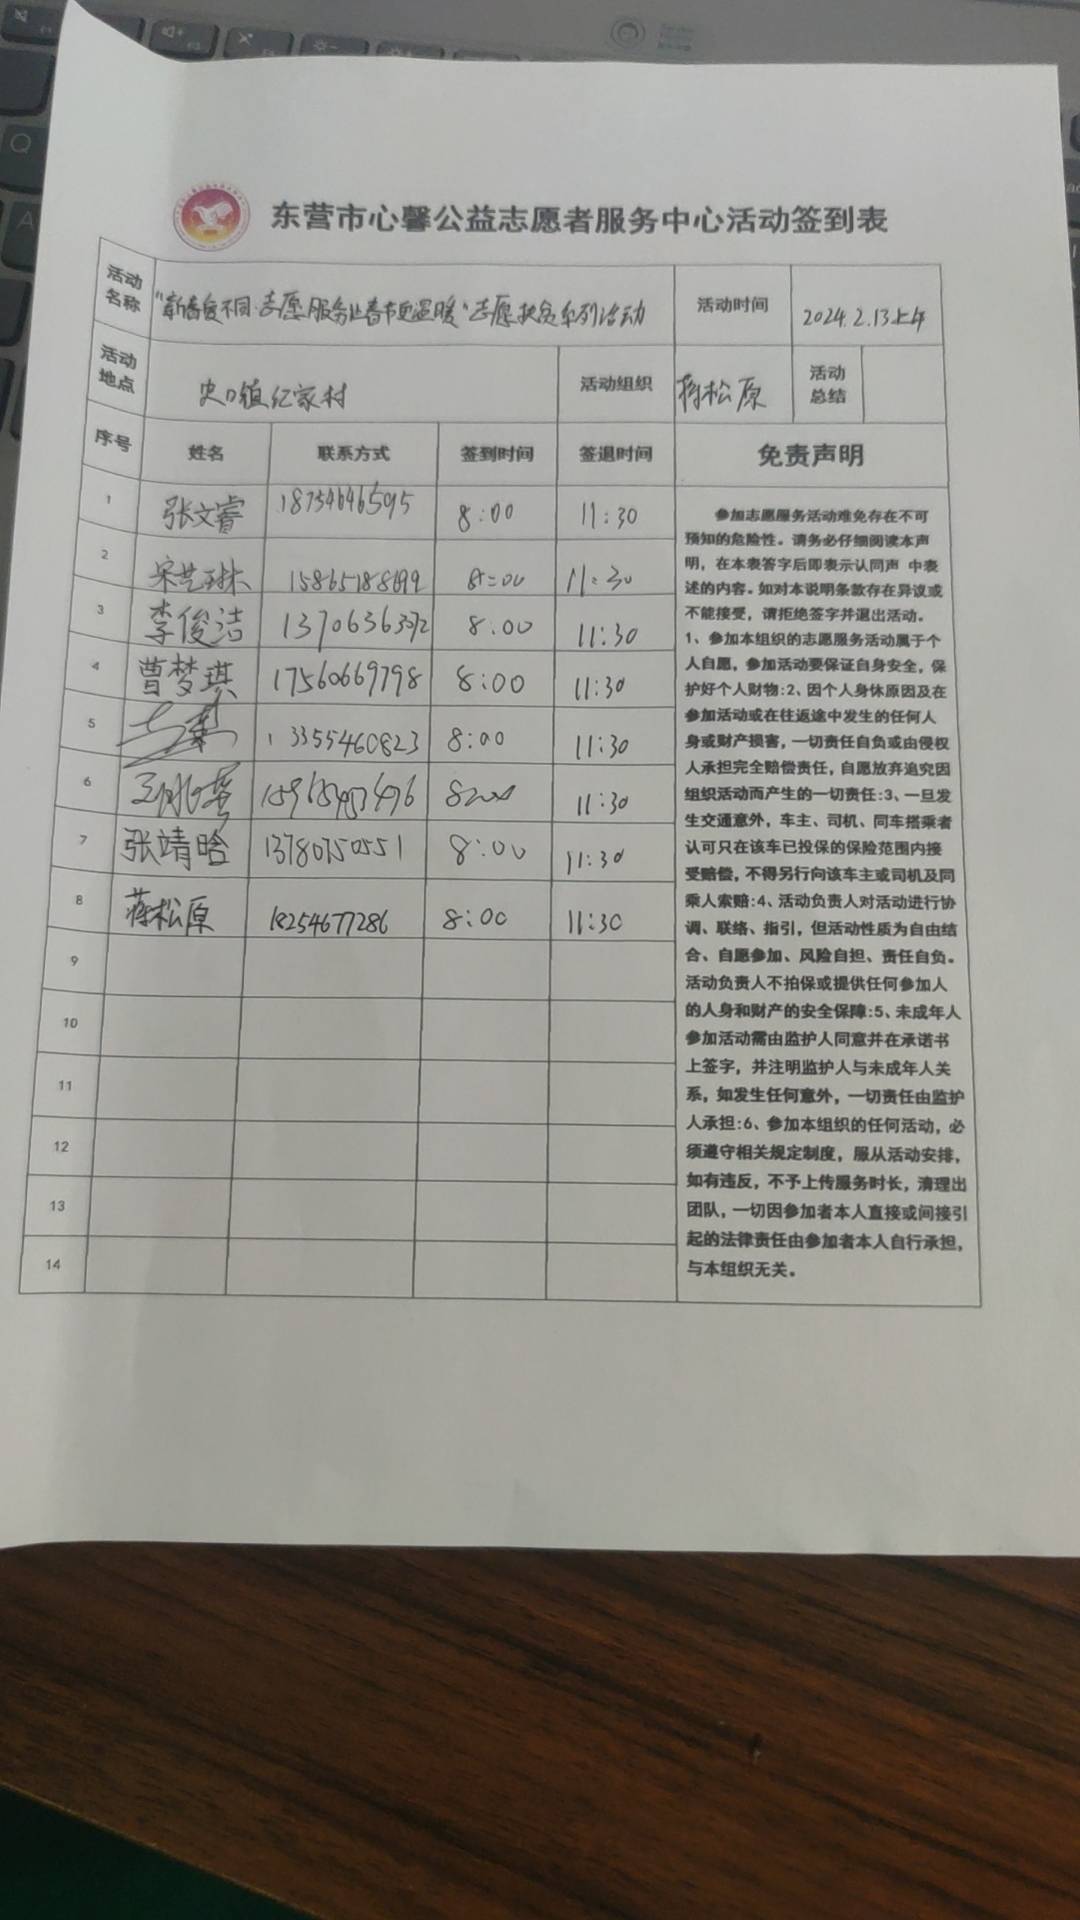 东营市心馨公益志愿者服务中心活动签到表
活动名称 志愿服务让春节更温暖"志愿扶贫系列活动 活动时间 2024.2.13上午
活动地点 史口镇纪家村 活动组织 蒋松原 活动总结
序号 姓名 联系方式 签到时间 签退时间 免责声明
1 张文睿 18754646595 8:00 11:30
2 宋艺琳 8:00 11:30
3 李俊洁 13706636392 8:00 11:30
4 曹梦琪 17560669798 8:00 11:30
5 13355460823 8:00 11:30
6 11:30
7 张靖晗 13780750551 8:00 11:30
8 蒋松原 18254677286 8:00 11:30
9
10
11
12
13
14
参加志愿服务活动难免存在不可
预知的危险性。请务必仔细阅读本声
明，在本表签字后即表示认同声 中表
述的内容。如对本说明条款存在异议或
不能接受，请拒绝签字并退出活动。
1、参加本组织的志愿服务活动属于个
人自愿，参加活动要保证自身安全，保
护好个人财物:2、因个人身休原因及在
参加活动或在往返途中发生的任何人
身或财产损害，一切责任自负或由侵权
人承担完全赔偿责任，自愿放弃追究因
组织活动而产生的一切责任:3、一旦发
生交通意外，车主、司机、同车搭乘者
认可只在该车已投保的保险范围内接
受赔偿，不得另行向该车主或司机及同
乘人索赔:4、活动负责人对活动进行协
调、联络、指引，但活动性质为自由结
合、自愿参加、风险自担、责任自负。
活动负责人不拍保或提供任何参加人
的人身和财产的安全保障:5、未成年人
参加活动需由监护人同意并在承诺书
上签字，并注明监护人与未成年人关
系，如发生任何意外，一切责任由监护
人承担:6、参加本组织的任何活动，必
须遵守相关规定制度，服从活动安排，
如有违反，不予上传服务时长，清理出
团队，一切因参加者本人直接或间接引
起的法律责任由参加者本人自行承担，
与本组织无关。